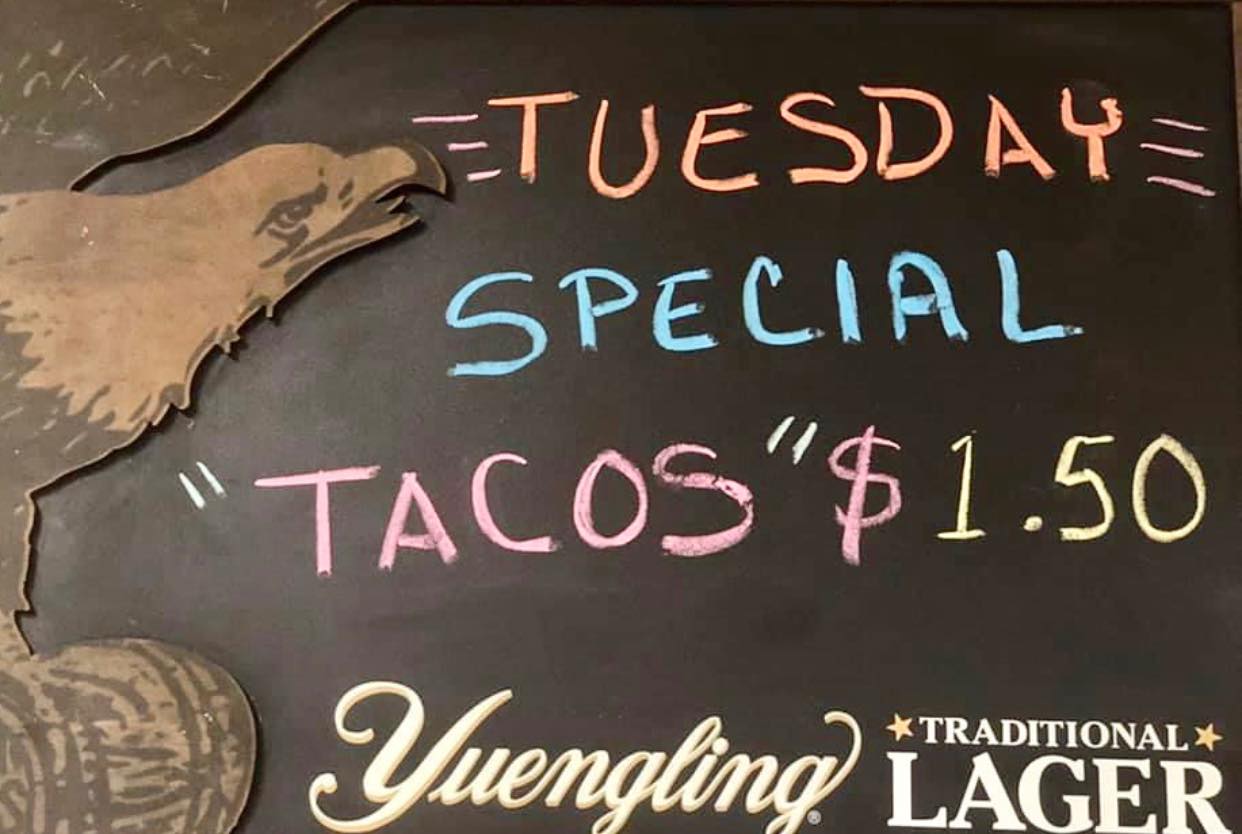 TUESDAY
SPECIAL
"TACOS" $1.50
Yuengling® ★TRADITIONAL★
LAGER